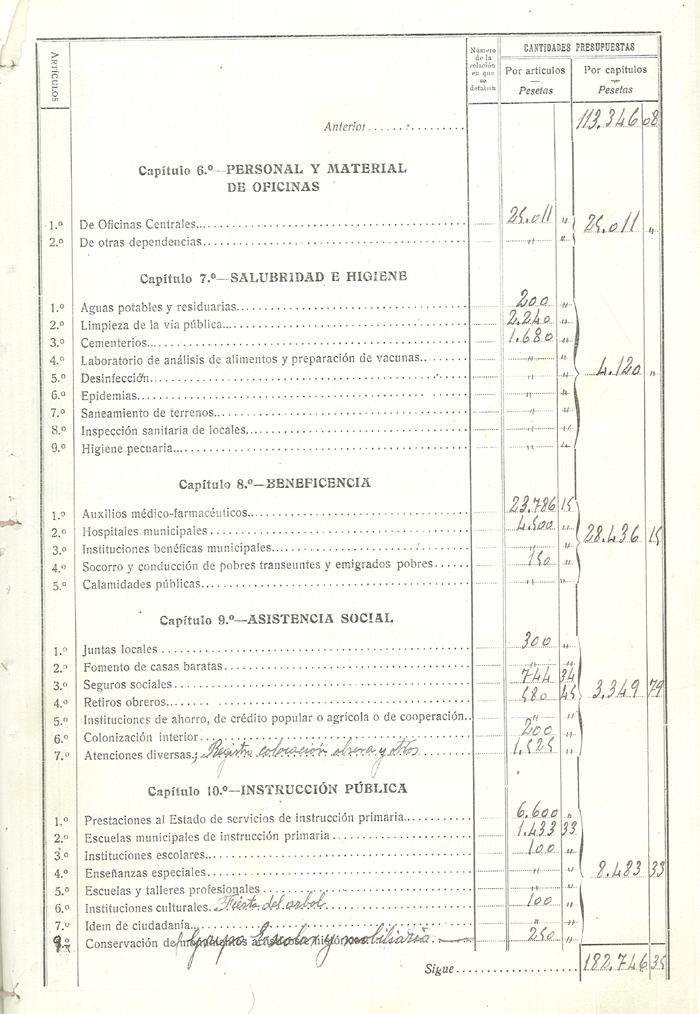 ARTICULOS
Número de la relación en que se detallan
CANTIDADES PRESUPUESTAS
Por artículos Por capítulos
Pesetas Pesetas
Anterior 113.346 08
Capítulo 6.º—PERSONAL Y MATERIAL
DE OFICINAS
1.º De Oficinas Centrales 25.011 „ 25.011 „
2.º De otras dependencias „ „
Capítulo 7.º—SALUBRIDAD E HIGIENE
1.º Aguas potables y residuarias 200 „
2.º Limpieza de la vía pública 2.240 „
3.º Cementerios 1.680 „
4.º Laboratorio de análisis de alimentos y preparación de vacunas „ „ 4.120 „
5.º Desinfección „ „
6.º Epidemias „ „
7.º Saneamiento de terrenos „ „
8.º Inspección sanitaria de locales „ „
9.º Higiene pecuaria „ „
Capítulo 8.º—BENEFICENCIA
1.º Auxilios médico-farmacéuticos 23.786 15
2.º Hospitales municipales 4.500 „ 28.436 15
3.º Instituciones benéficas municipales „ „
4.º Socorro y conducción de pobres transeuntes y emigrados pobres 150 „
5.º Calamidades públicas „ „
Capítulo 9.º—ASISTENCIA SOCIAL
1.º Juntas locales 300 „
2.º Fomento de casas baratas „ „
3.º Seguros sociales 744 34
4.º Retiros obreros 580 45 3.349 79
5.º Instituciones de ahorro, de crédito popular o agrícola o de cooperación „ „
6.º Colonización interior 200 „
7.º Atenciones diversas; Registro colocación obrera y otros 1.525 „
Capítulo 10.º—INSTRUCCIÓN PÚBLICA
1.º Prestaciones al Estado de servicios de instrucción primaria 6.600 „
2.º Escuelas municipales de instrucción primaria 1.433 33
3.º Instituciones escolares 100 „
4.º Enseñanzas especiales „ „ 8.483 33
5.º Escuelas y talleres profesionales „ „
6.º Instituciones culturales Fiesta del arbol 100 „
7.º Idem de ciudadanía „ „
Conservación de Grupo Escolar y mobiliario 250 „
Sigue 182.746 35